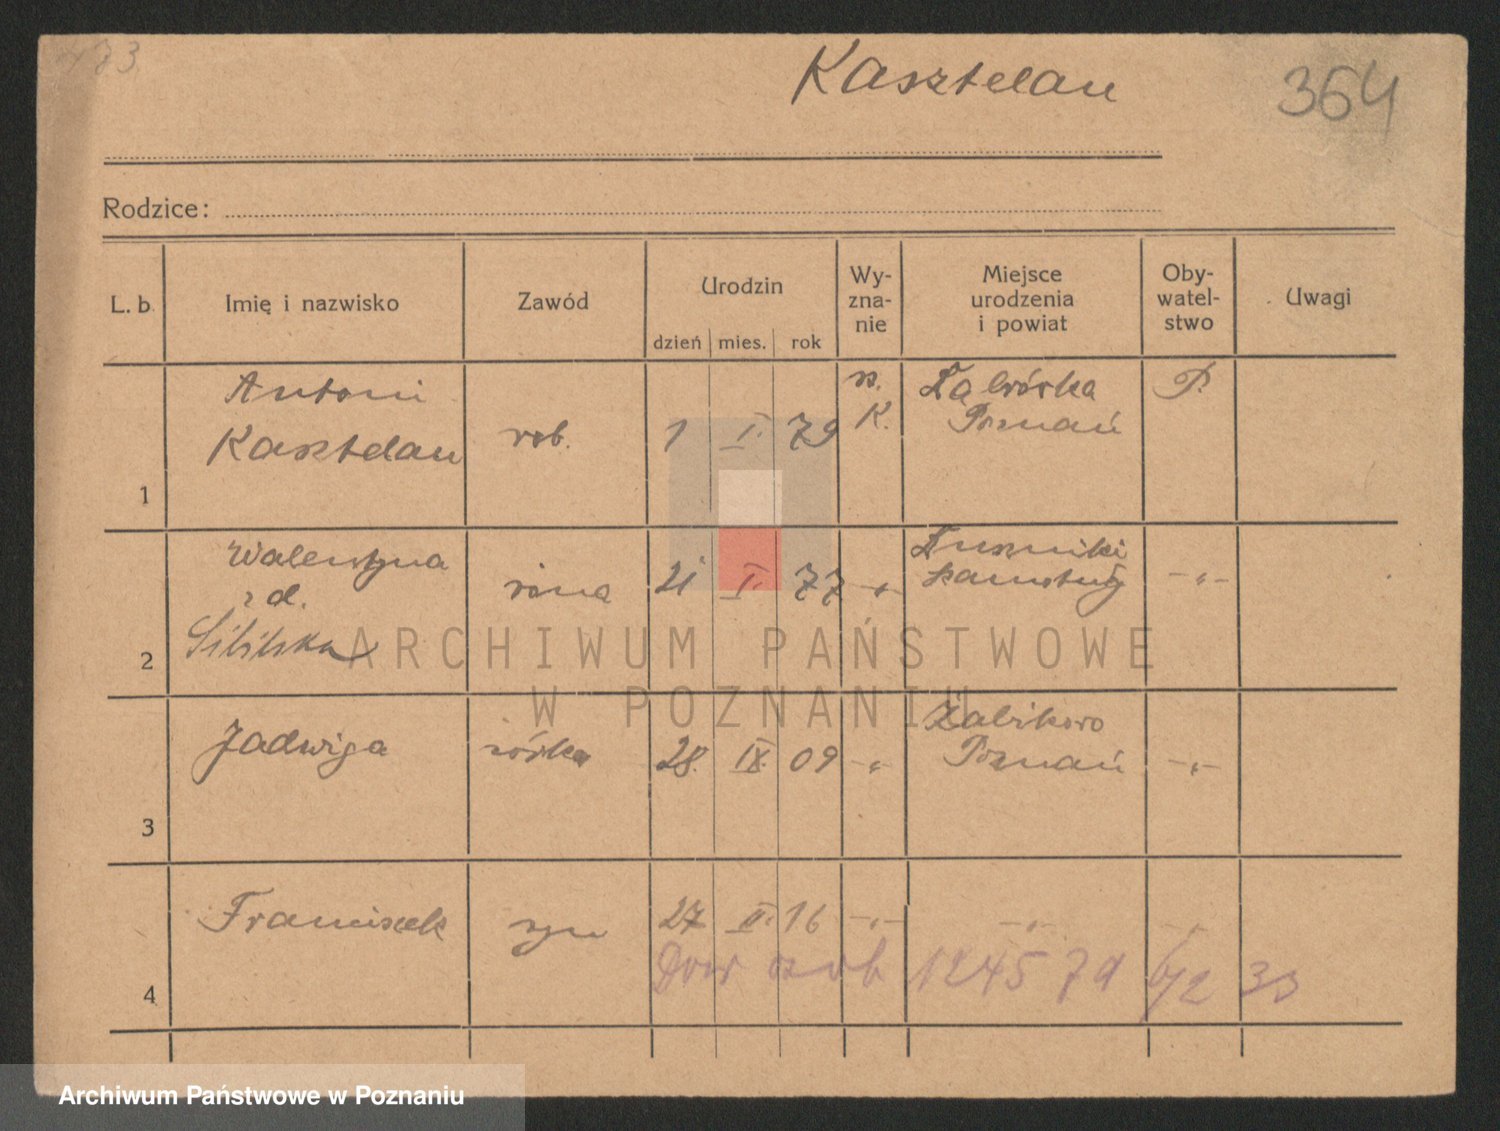 473
Kasztelan
364
Rodzice:
L. b.
Imię i nazwisko
Zawód
Urodzin
dzień
mies.
rok
Wy-
zna-
nie
Miejsce
urodzenia
i powiat
Oby-
watel-
stwo
Uwagi
1
Antoni
Kasztelan
rob.
1
I.
79
rz.
K.
Dąbrówka
Poznań
P.
2
Walentyna
z d.
żona
21
I.
77
-„-
-„-
3
Jadwiga
córka
28.
IX.
09
-„-
Żabikowo
Poznań
-„-
4
Franciszek
syn
27
II.
16
-„-
-„-
Dow osob 124579 6/2 33
ARCHIWUM PAŃSTWOWE
W POZNANIU
Archiwum Państwowe w Poznaniu